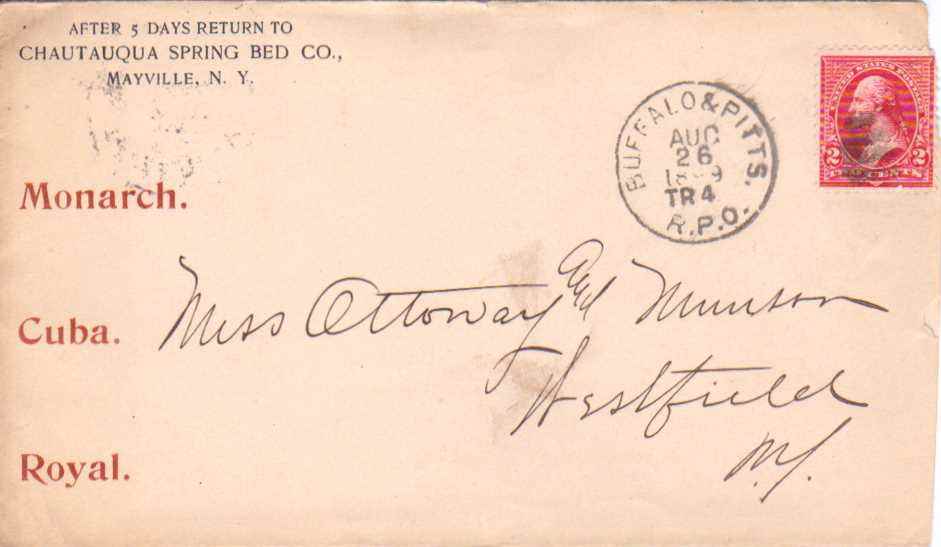 AFTER 5 DAYS RETURN TO
CHAUTAUQUA SPRING BED CO.,
MAYVILLE, N. Y.
BUFFALO & PITTS.
AUG
26
TR 4
R.P.O.
UNITED STATES POSTAGE
2 2
Monarch.
Cuba.
Royal.
Miss Ottoway and Munson
Westfield
N.Y.